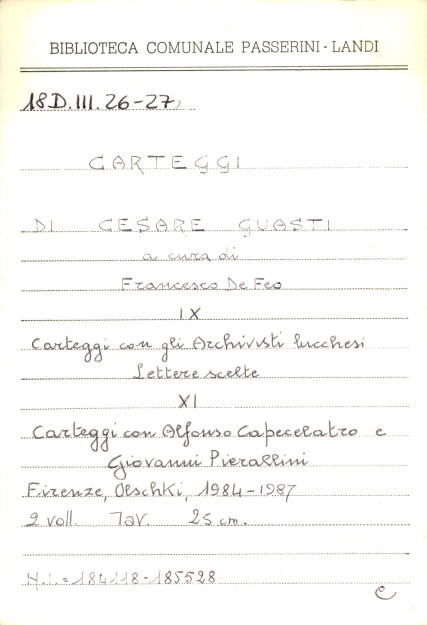 BIBLIOTECA COMUNALE PASSERINI - LANDI
18D.III.26-27
CARTEGGI
DI CESARE GUASTI
a cura di
Francesco De Feo
IX
Carteggi con gli Archivisti lucchesi
Lettere scelte
XI
Carteggi con Alfonso Capecelatro e
Giovanni Pierallini
Firenze, Olschki, 1984-1987
2 voll. Tav. 25 cm.
N.i.=184118-185528
C